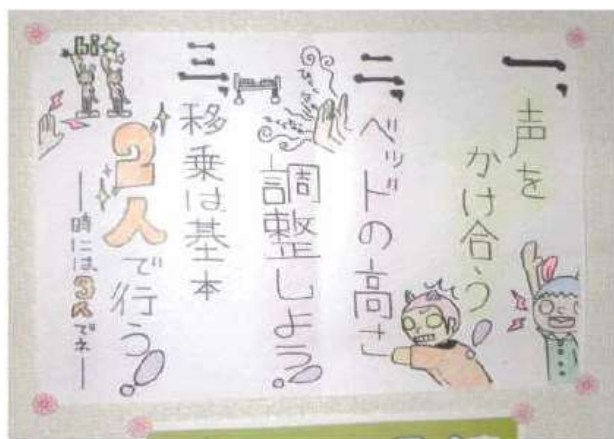 一、
声を
かけ合う!
二、
ベッドの高さ
調整しよう!
三、
移乗は基本
2人で行う!
―時には、3人でネ―
hi☆